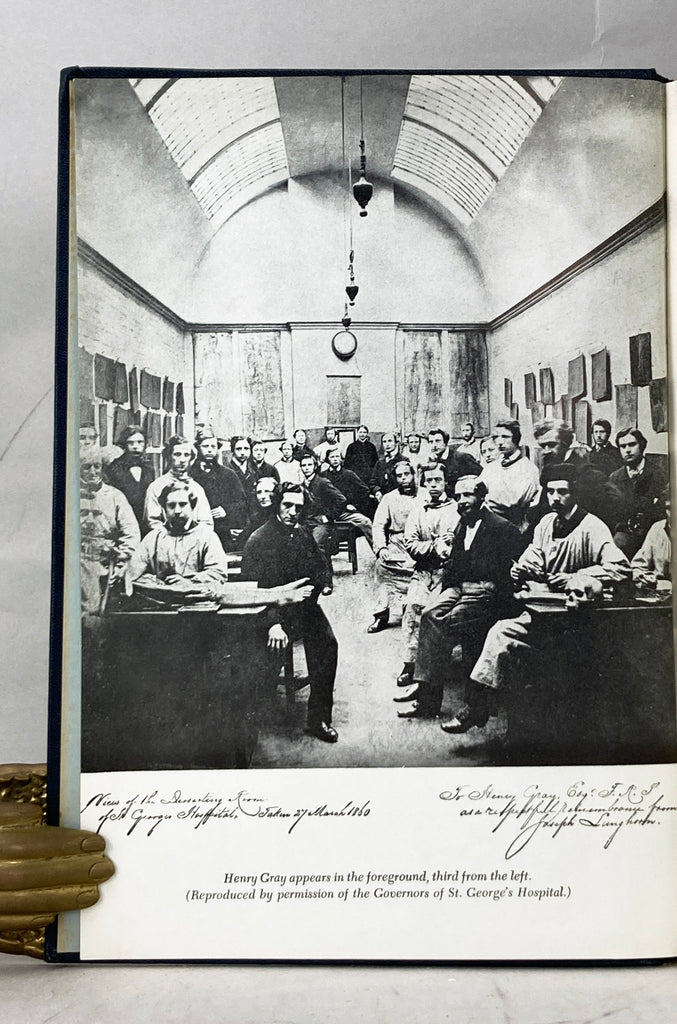 View of the Dissecting Room
of St Georges Hospital, Taken 27 March 1860
To Henry Gray, Esqr. F.R.S
as a respectful remembrance from
Joseph Langhorn.
Henry Gray appears in the foreground, third from the left.
(Reproduced by permission of the Governors of St. George's Hospital.)